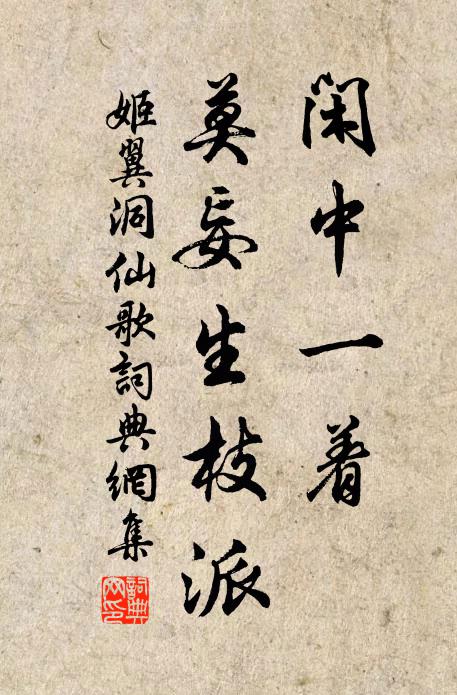 閑中一着
莫妄生枝派
姬翼洞仙歌詞典網集
詞典网印